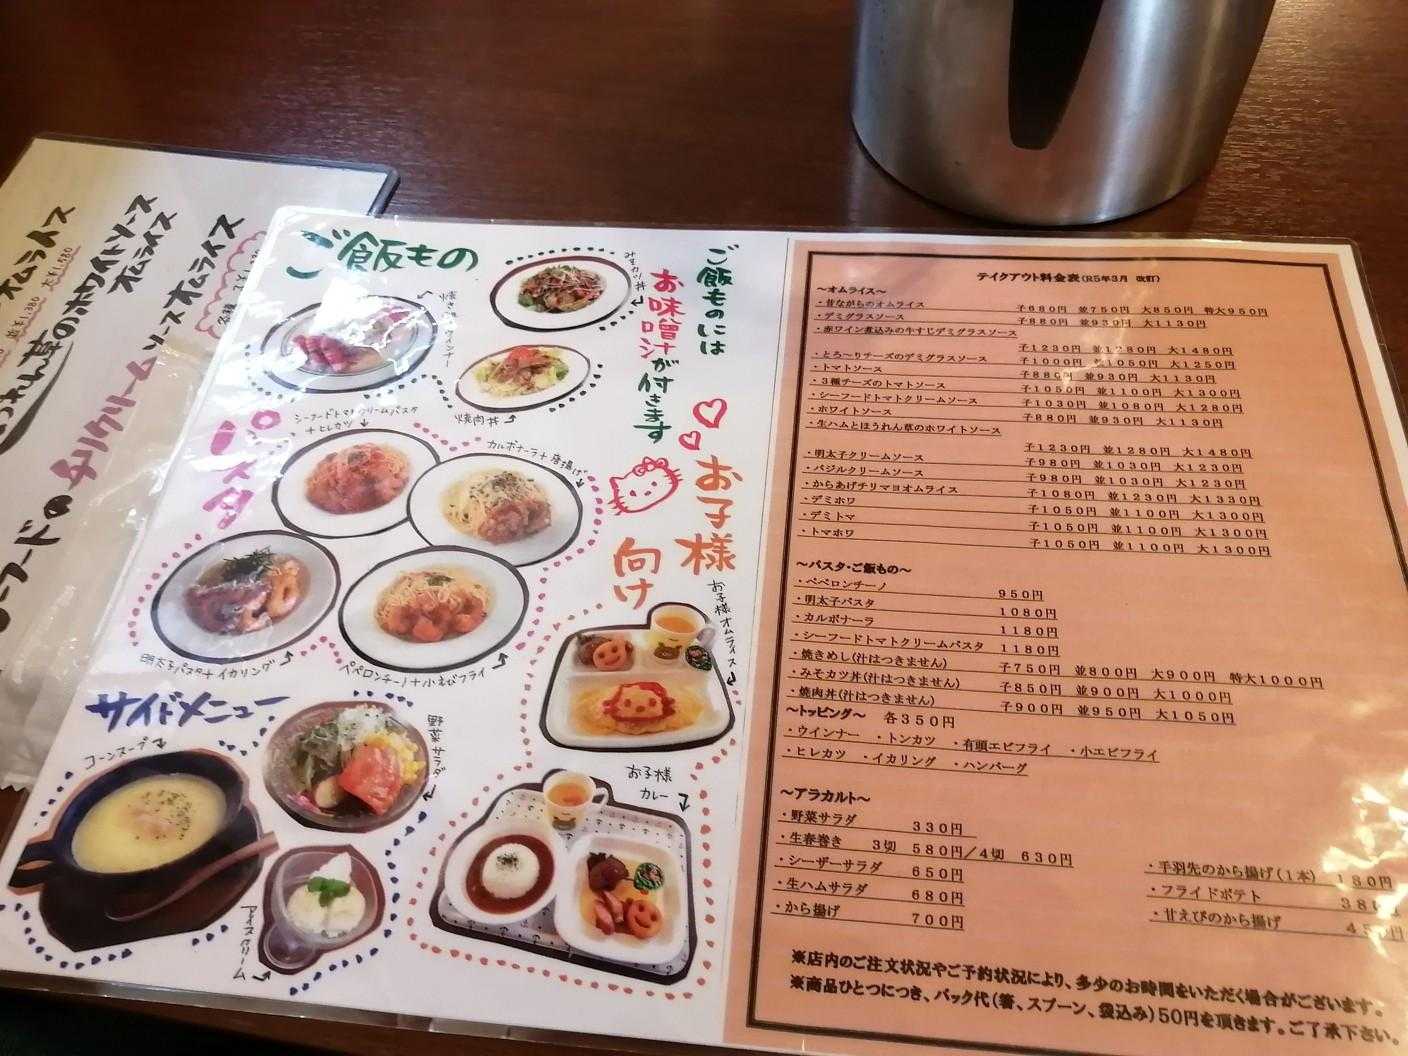 オムライス
大¥1,580
並¥1,380
うれん草のホワイトソース
オムライス
チリクリームソースオムライス
シーフードの
ご飯もの
みそカツ丼
焼肉丼
ご飯ものには
お味噌汁が
付きます
パスタ
シーフードトマトクリームパスタ
+ヒレカツ
カルボナーラ+唐揚げ
明太子パスタ+イカリング
ペペロンチーノ+小えびフライ
お子様
向け
お子様オムライス
お子様
カレー
サイドメニュー
コーンスープ
野菜サラダ
テイクアウト料金表(R5年3月 改訂)
〜オムライス〜
・昔ながらのオムライス 子680円 並750円 大850円 特大950円
・デミグラスソース 子880円 並930円 大1130円
・赤ワイン煮込みの牛すじデミグラスソース
子1230円 並1280円 大1480円
・とろ〜りチーズのデミグラスソース 子1000円 並1050円 大1250円
・トマトソース 子880円 並930円 大1130円
・3種チーズのトマトソース 子1050円 並1100円 大1300円
・シーフードトマトクリームソース 子1030円 並1080円 大1280円
・ホワイトソース 子880円 並930円 大1130円
・生ハムとほうれん草のホワイトソース
子1230円 並1280円 大1480円
・明太子クリームソース 子980円 並1030円 大1230円
・バジルクリームソース 子980円 並1030円 大1230円
・からあげチリマヨオムライス 子1080円 並1230円 大1330円
・デミホワ 子1050円 並1100円 大1300円
・デミトマ 子1050円 並1100円 大1300円
・トマホワ 子1050円 並1100円 大1300円
〜パスタ・ご飯もの〜
・ペペロンチーノ 950円
・明太子パスタ 1080円
・カルボナーラ 1180円
・シーフードトマトクリームパスタ 1180円
・焼きめし(汁はつきません) 子750円 並800円 大900円 特大1000円
・みそカツ丼(汁はつきません) 子850円 並900円 大1000円
・焼肉丼(汁はつきません) 子900円 並950円 大1050円
〜トッピング〜 各350円
・ウインナー ・トンカツ ・有頭エビフライ ・小エビフライ
・ヒレカツ ・イカリング ・ハンバーグ
〜アラカルト〜
・野菜サラダ 330円
・生春巻き 3切 580円/4切 630円
・シーザーサラダ 650円
・生ハムサラダ 680円
・から揚げ 700円
・手羽先のから揚げ(1本) 180円
・フライドポテト
・甘えびのから揚げ
※店内のご注文状況やご予約状況により、多少のお時間をいただく場合がございます。
※商品ひとつにつき、パック代(箸、スプーン、袋込み)50円を頂きます。ご了承下さい。